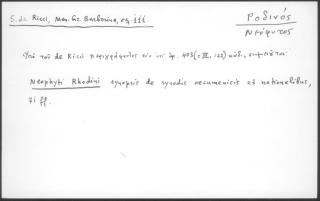 S. de Ricci, Mss. Gr. Barberini, σ. 111.
Ροδινός
Νεόφυτος
Ὑπὸ τοῦ de Ricci περιγράφεται τὸν ὑπ' ἀρ. 403 (= III, 122) κώδ.,
Neophyti Rhodini synopsis de synodis oecumenicis et nationalibus,
71 ff.